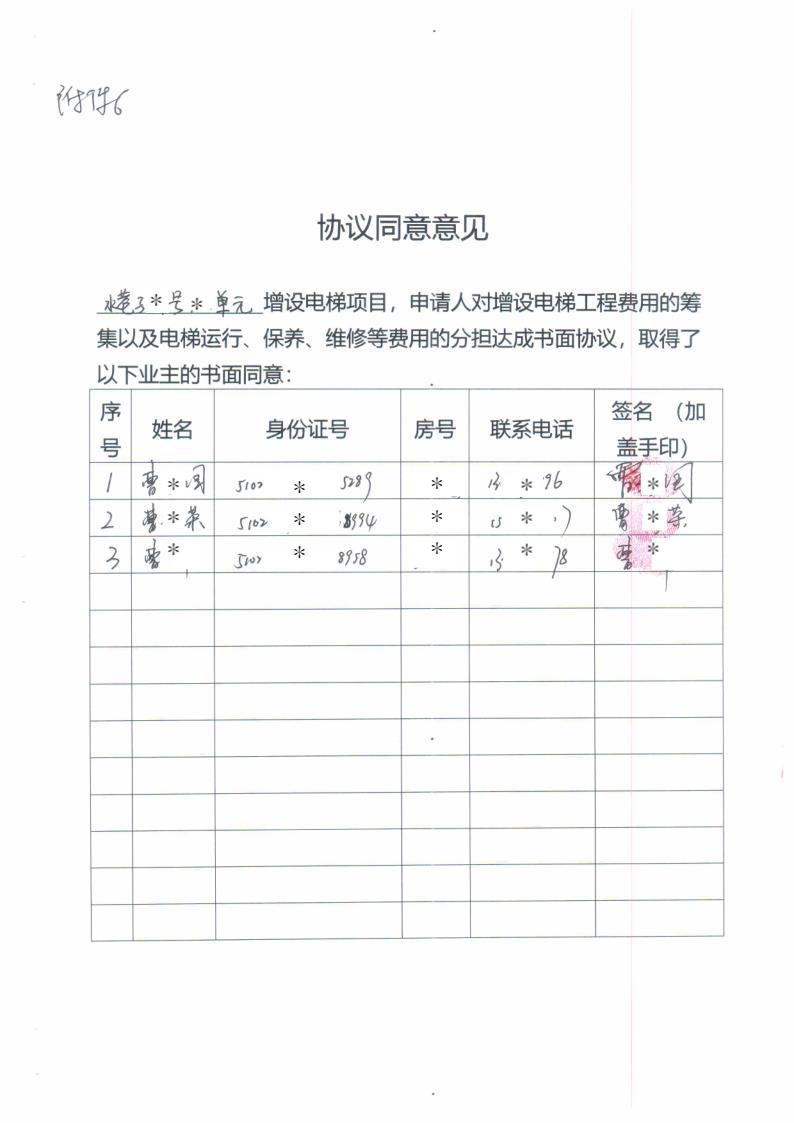 附件6
协议同意意见
水塔3*号*单元 增设电梯项目，申请人对增设电梯工程费用的筹
集以及电梯运行、保养、维修等费用的分担达成书面协议，取得了
以下业主的书面同意：
序号 姓名 身份证号 房号 联系电话 签名 （加盖手印）
1 曹*闵 5102 * 5289 * 13 * 96 曹*闵
2 曹*荣 5102 * 8994 * 13 * 17 曹*荣
3 曹* 5102 * 8958 * 13 * 78 曹*